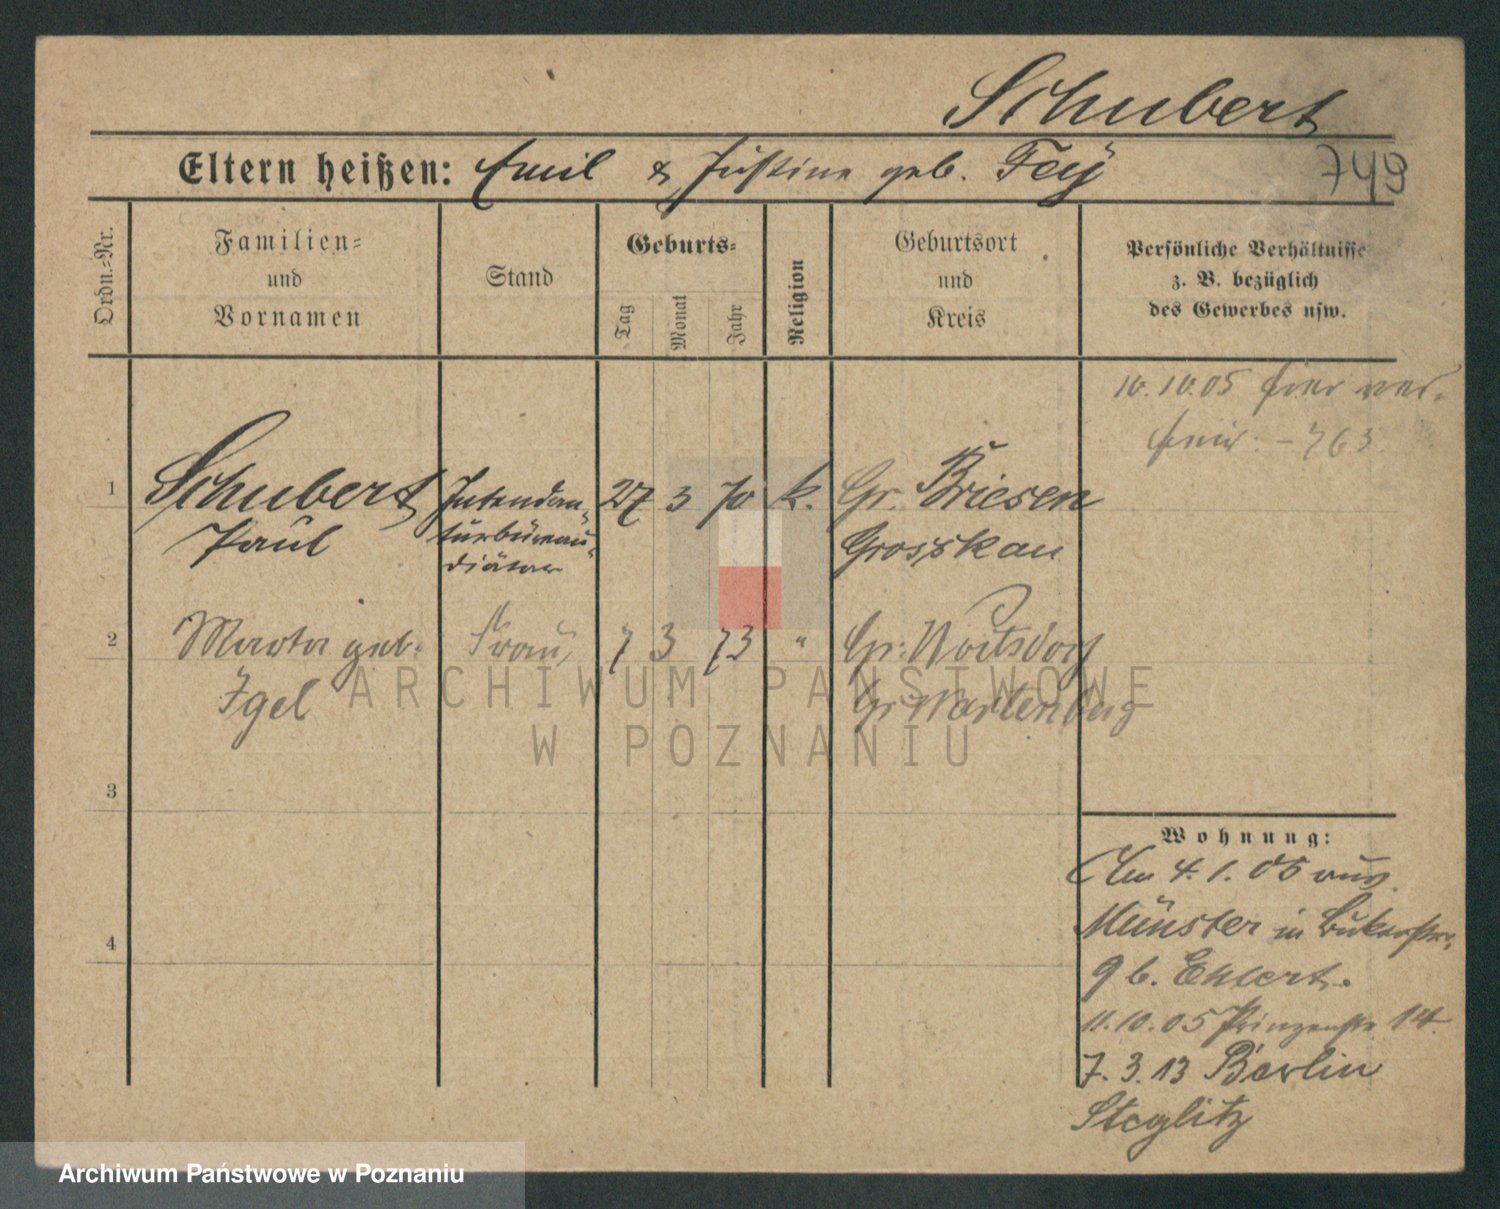 Schubert
Eltern heißen: Emil & Justine geb. Fey
749
Ordn.-Nr.
Familien-
und
Vornamen
Stand
Geburts-
Tag
Monat
Jahr
Religion
Geburtsort
und
Kreis
Persönliche Verhältnisse
z. B. bezüglich
des Gewerbes usw.
10.10.05 hier ver-
heir. - 763
1
Schubert
Paul
Intendan-
turbüreau-
diätar
27 3 70 k.
Gr. Briesen
Grosskau
2
Marta geb.
Igel
Frau
7 3 73 "
Gr. Woitsdorf
Gr. Wartenbug
3
4
Wohnung:
Am 4.1.05 aus
Münster in Bukerstr.
9 b. Ehlert.
11.10.05 Prinzenstr. 14.
7.3.13 Berlin
Steglitz
ARCHIWUM PAŃSTWOWE
W POZNANIU
Archiwum Państwowe w Poznaniu